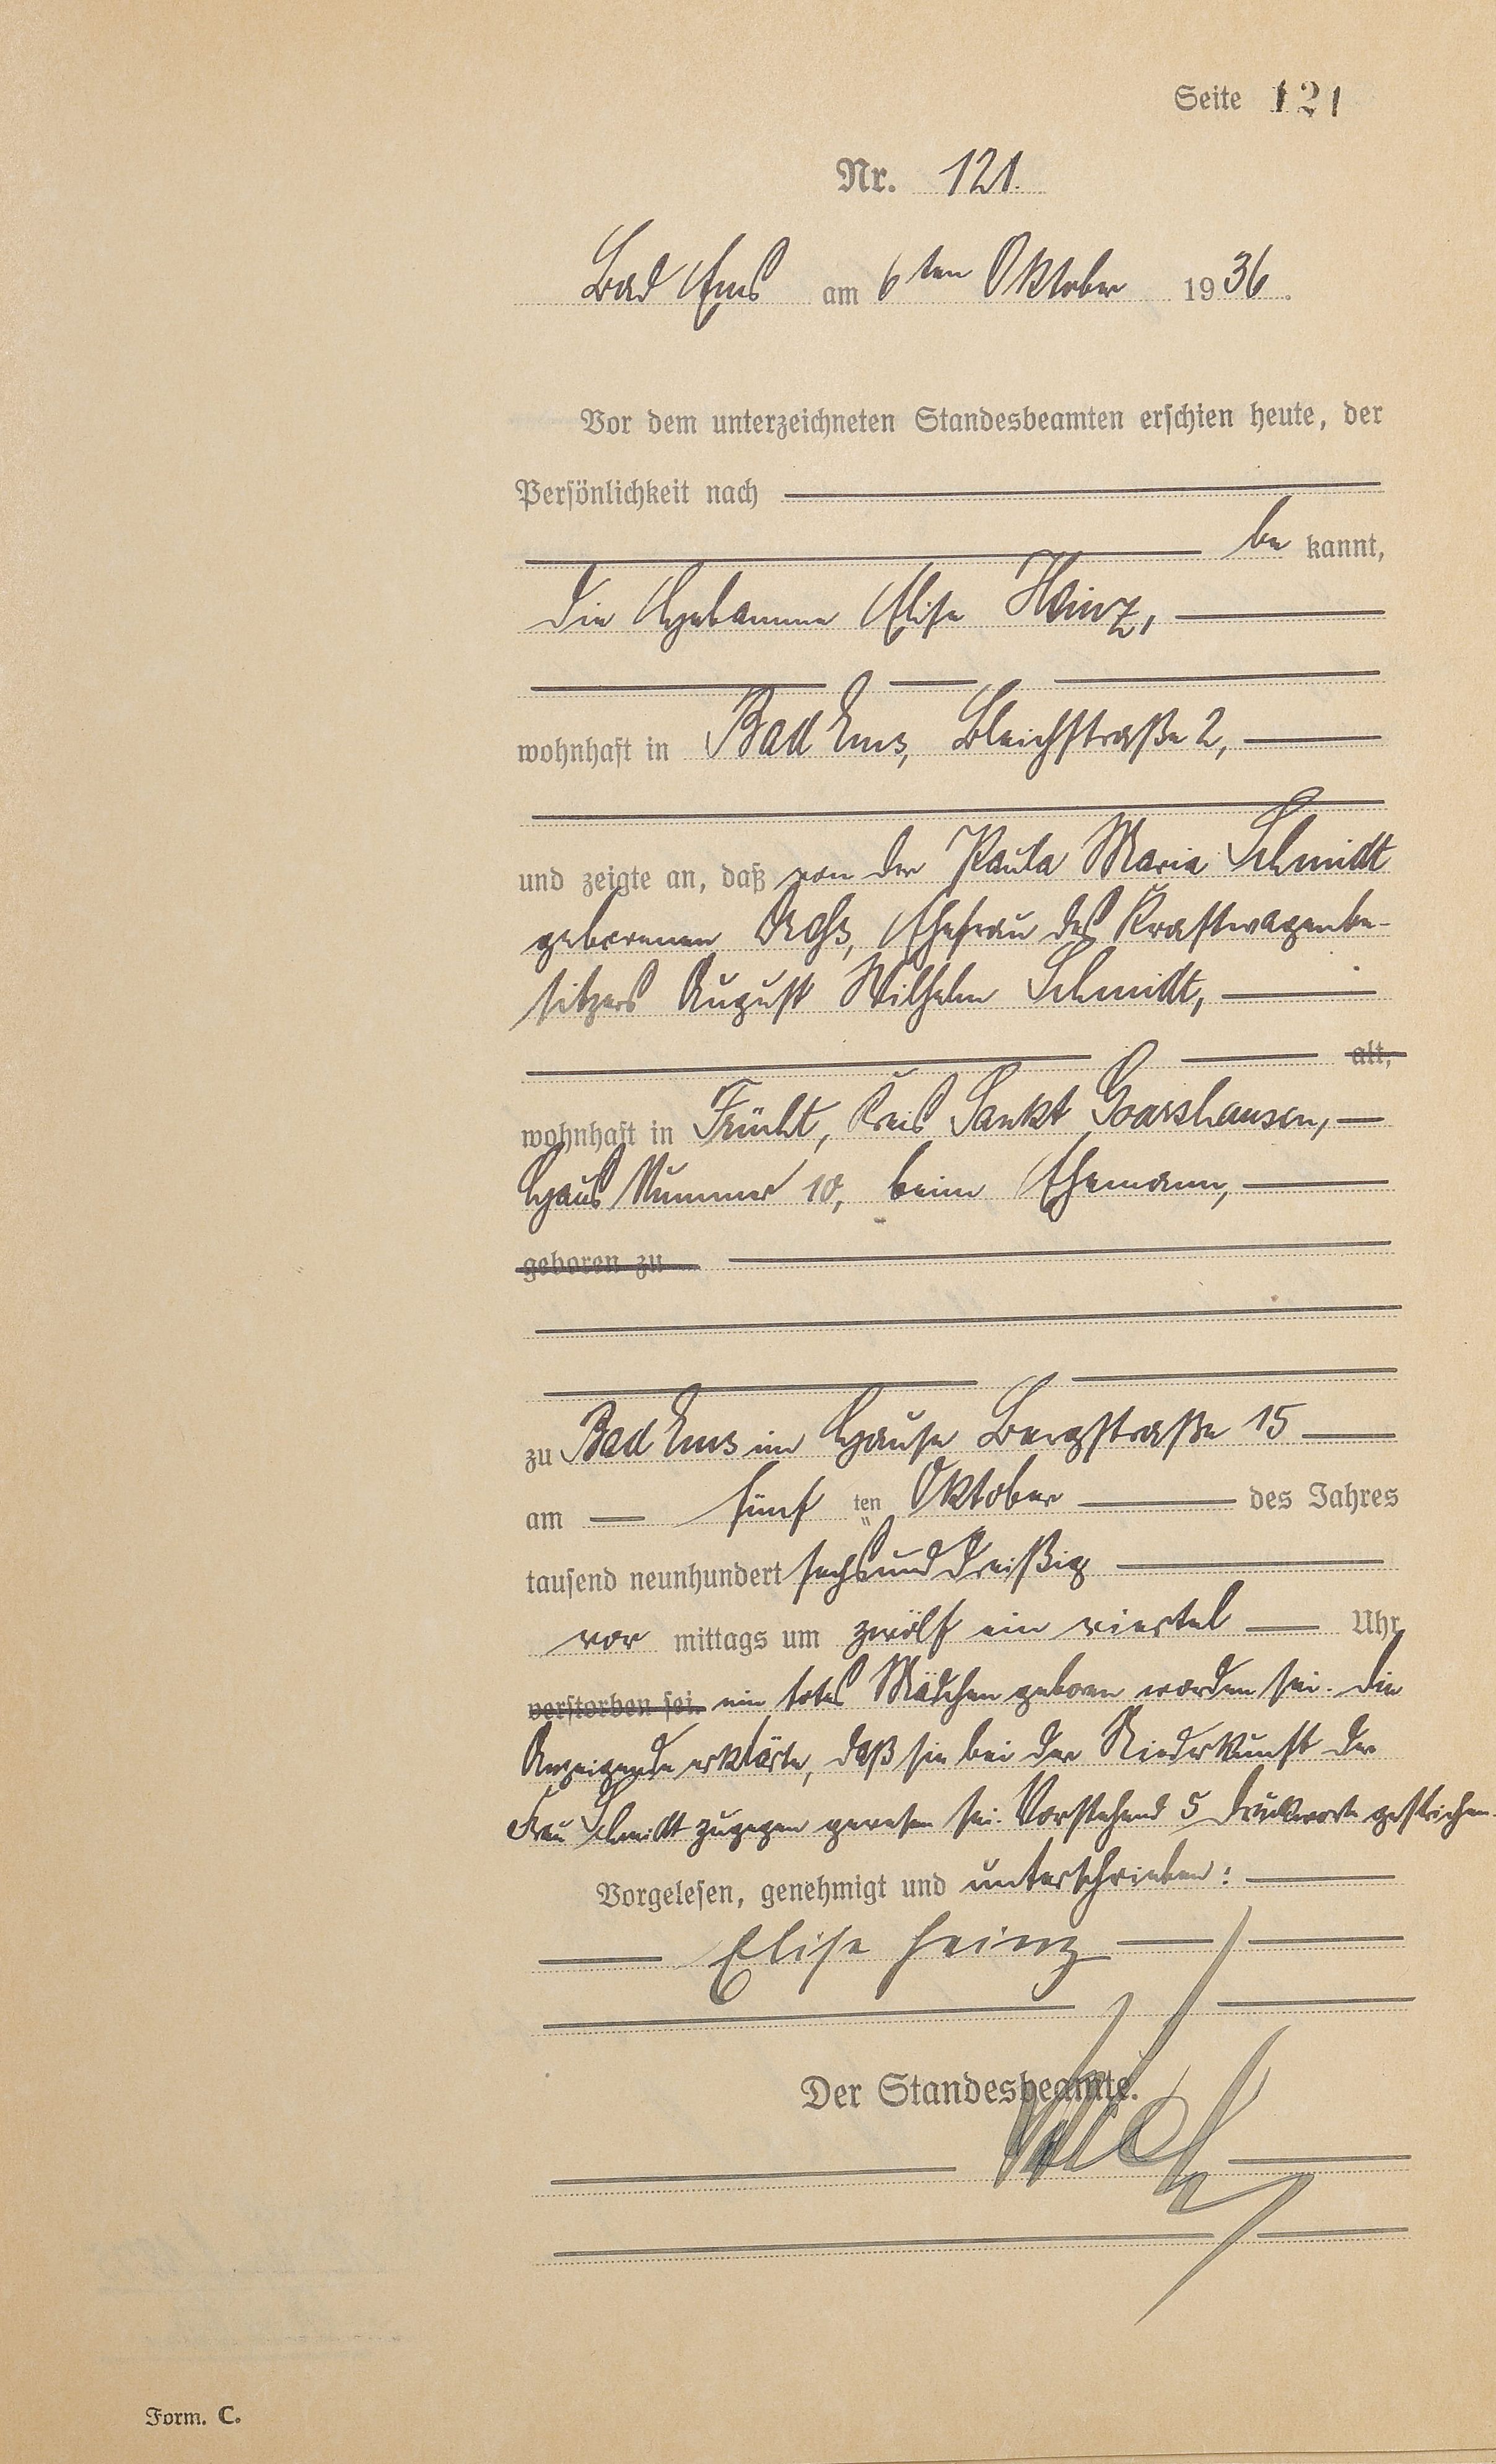 Seite 121
Nr. 121.
Bad Ems am 6ten Oktober 1936.
Vor dem unterzeichneten Standesbeamten erschien heute, der
Persönlichkeit nach
be kannt,
die Hebamme Elise Heinz,
wohnhaft in Bad Ems, Bleichstraße 2,
und zeigte an, daß von der Paula Maria Schmidt
geborenen Ehefrau des Kraftwagenbe-
sitzers August Wilhelm Schmidt,
alt,
wohnhaft in Frücht, Kreis Sankt Goarshausen,
Haus Nummer 10, beim Ehemann,
geboren zu
zu Bad Ems im Hause Bergstraße 15
am fünf ten Oktober des Jahres
tausend neunhundert sechsunddreißig
vor mittags um zwölf ein viertel Uhr
verstorben sei. ein totes Mädchen geboren worden sei. Die
Anzeigende erklärte, daß sie bei der Niederkunft der
Frau Schmidt zugegen gewesen sei. Vorstehend 5 Druckworte gestrichen.
Vorgelesen, genehmigt und unterschrieben:
Elise Heinz
Der Standesbeamte.
Form. C.